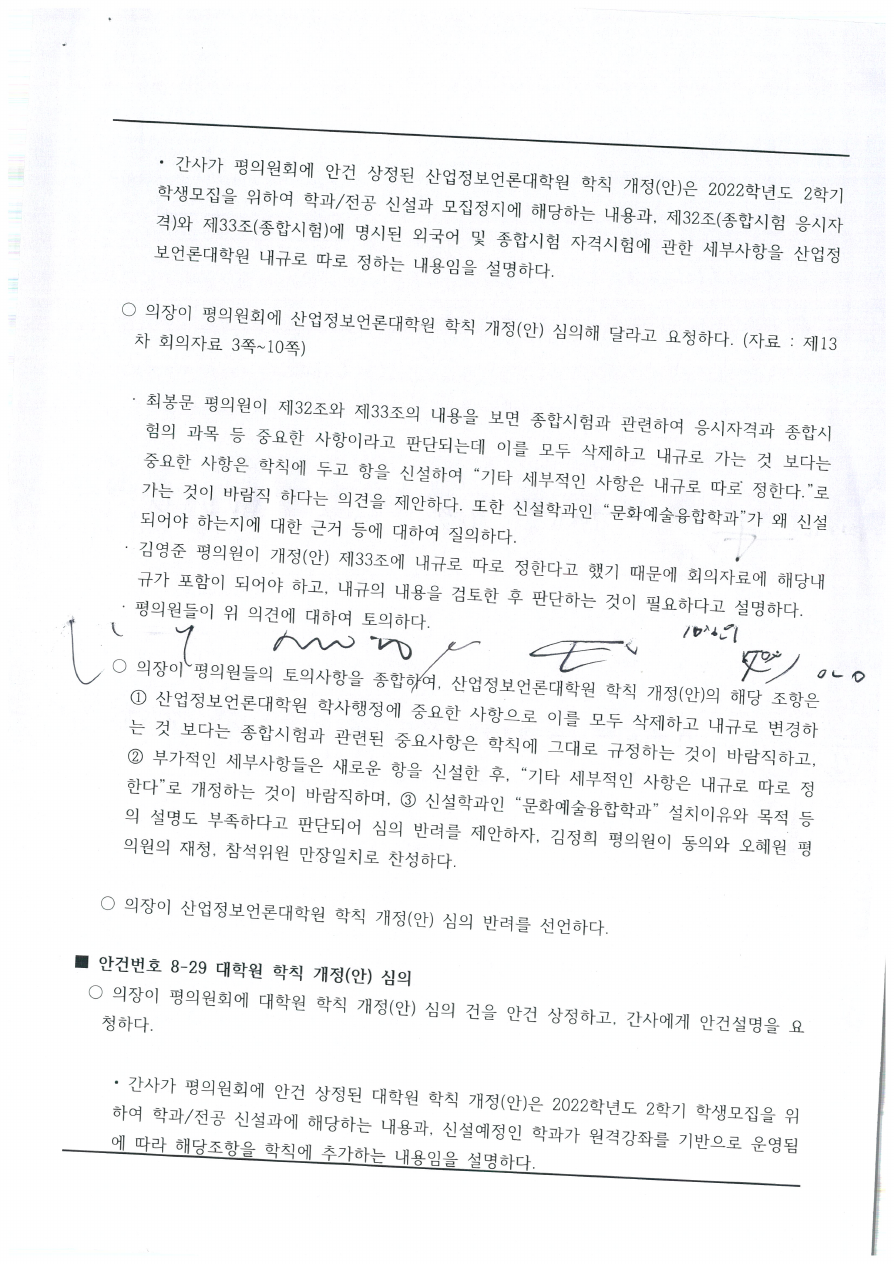 • 간사가 평의원회에 안건 상정된 산업정보언론대학원 학칙 개정(안)은 2022학년도 2학기
학생모집을 위하여 학과/전공 신설과 모집정지에 해당하는 내용과, 제32조(종합시험 응시자
격)와 제33조(종합시험)에 명시된 외국어 및 종합시험 자격시험에 관한 세부사항을 산업정
보언론대학원 내규로 따로 정하는 내용임을 설명하다.
○ 의장이 평의원회에 산업정보언론대학원 학칙 개정(안) 심의해 달라고 요청하다. (자료 : 제13
차 회의자료 3쪽~10쪽)
· 최봉문 평의원이 제32조와 제33조의 내용을 보면 종합시험과 관련하여 응시자격과 종합시
험의 과목 등 중요한 사항이라고 판단되는데 이를 모두 삭제하고 내규로 가는 것 보다는
중요한 사항은 학칙에 두고 항을 신설하여 “기타 세부적인 사항은 내규로 따로 정한다.”로
가는 것이 바람직 하다는 의견을 제안하다. 또한 신설학과인 “문화예술융합학과”가 왜 신설
되어야 하는지에 대한 근거 등에 대하여 질의하다.
· 김영준 평의원이 개정(안) 제33조에 내규로 따로 정한다고 했기 때문에 회의자료에 해당내
규가 포함이 되어야 하고, 내규의 내용을 검토한 후 판단하는 것이 필요하다고 설명하다.
· 평의원들이 위 의견에 대하여 토의하다.
○ 의장이 평의원들의 토의사항을 종합하여, 산업정보언론대학원 학칙 개정(안)의 해당 조항은
① 산업정보언론대학원 학사행정에 중요한 사항으로 이를 모두 삭제하고 내규로 변경하
는 것 보다는 종합시험과 관련된 중요사항은 학칙에 그대로 규정하는 것이 바람직하고,
② 부가적인 세부사항들은 새로운 항을 신설한 후, “기타 세부적인 사항은 내규로 따로 정
한다”로 개정하는 것이 바람직하며, ③ 신설학과인 “문화예술융합학과” 설치이유와 목적 등
의 설명도 부족하다고 판단되어 심의 반려를 제안하자, 김정희 평의원이 동의와 오혜원 평
의원의 재청, 참석위원 만장일치로 찬성하다.
○ 의장이 산업정보언론대학원 학칙 개정(안) 심의 반려를 선언하다.
■ 안건번호 8-29 대학원 학칙 개정(안) 심의
○ 의장이 평의원회에 대학원 학칙 개정(안) 심의 건을 안건 상정하고, 간사에게 안건설명을 요
청하다.
• 간사가 평의원회에 안건 상정된 대학원 학칙 개정(안)은 2022학년도 2학기 학생모집을 위
하여 학과/전공 신설과에 해당하는 내용과, 신설예정인 학과가 원격강좌를 기반으로 운영됨
에 따라 해당조항을 학칙에 추가하는 내용임을 설명하다.